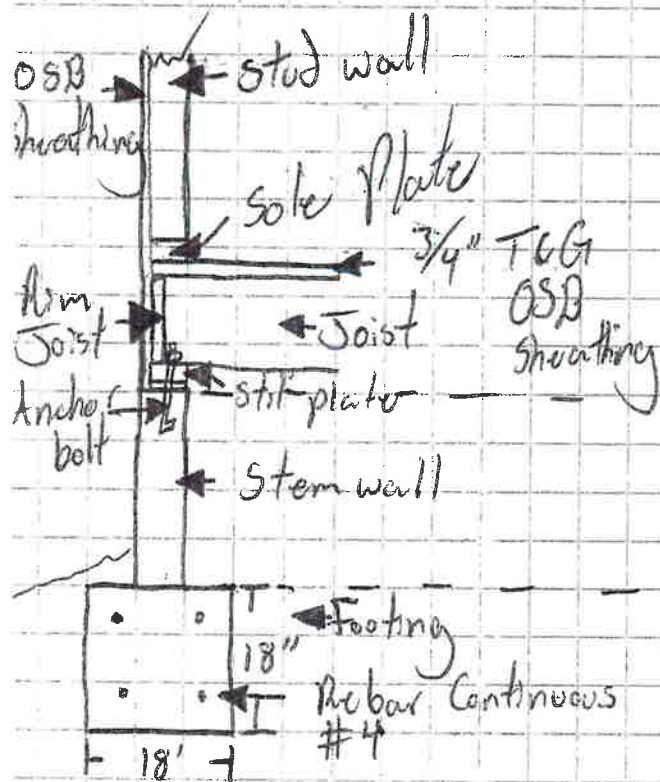 OSB
Sheathing
Stud wall
Sole Plate
3/4" T&G
OSB
Sheathing
Rim
Joist
Joist
Anchor
bolt
Sill plate
Stem wall
Footing
18"
Rebar Continuous
#4
18'